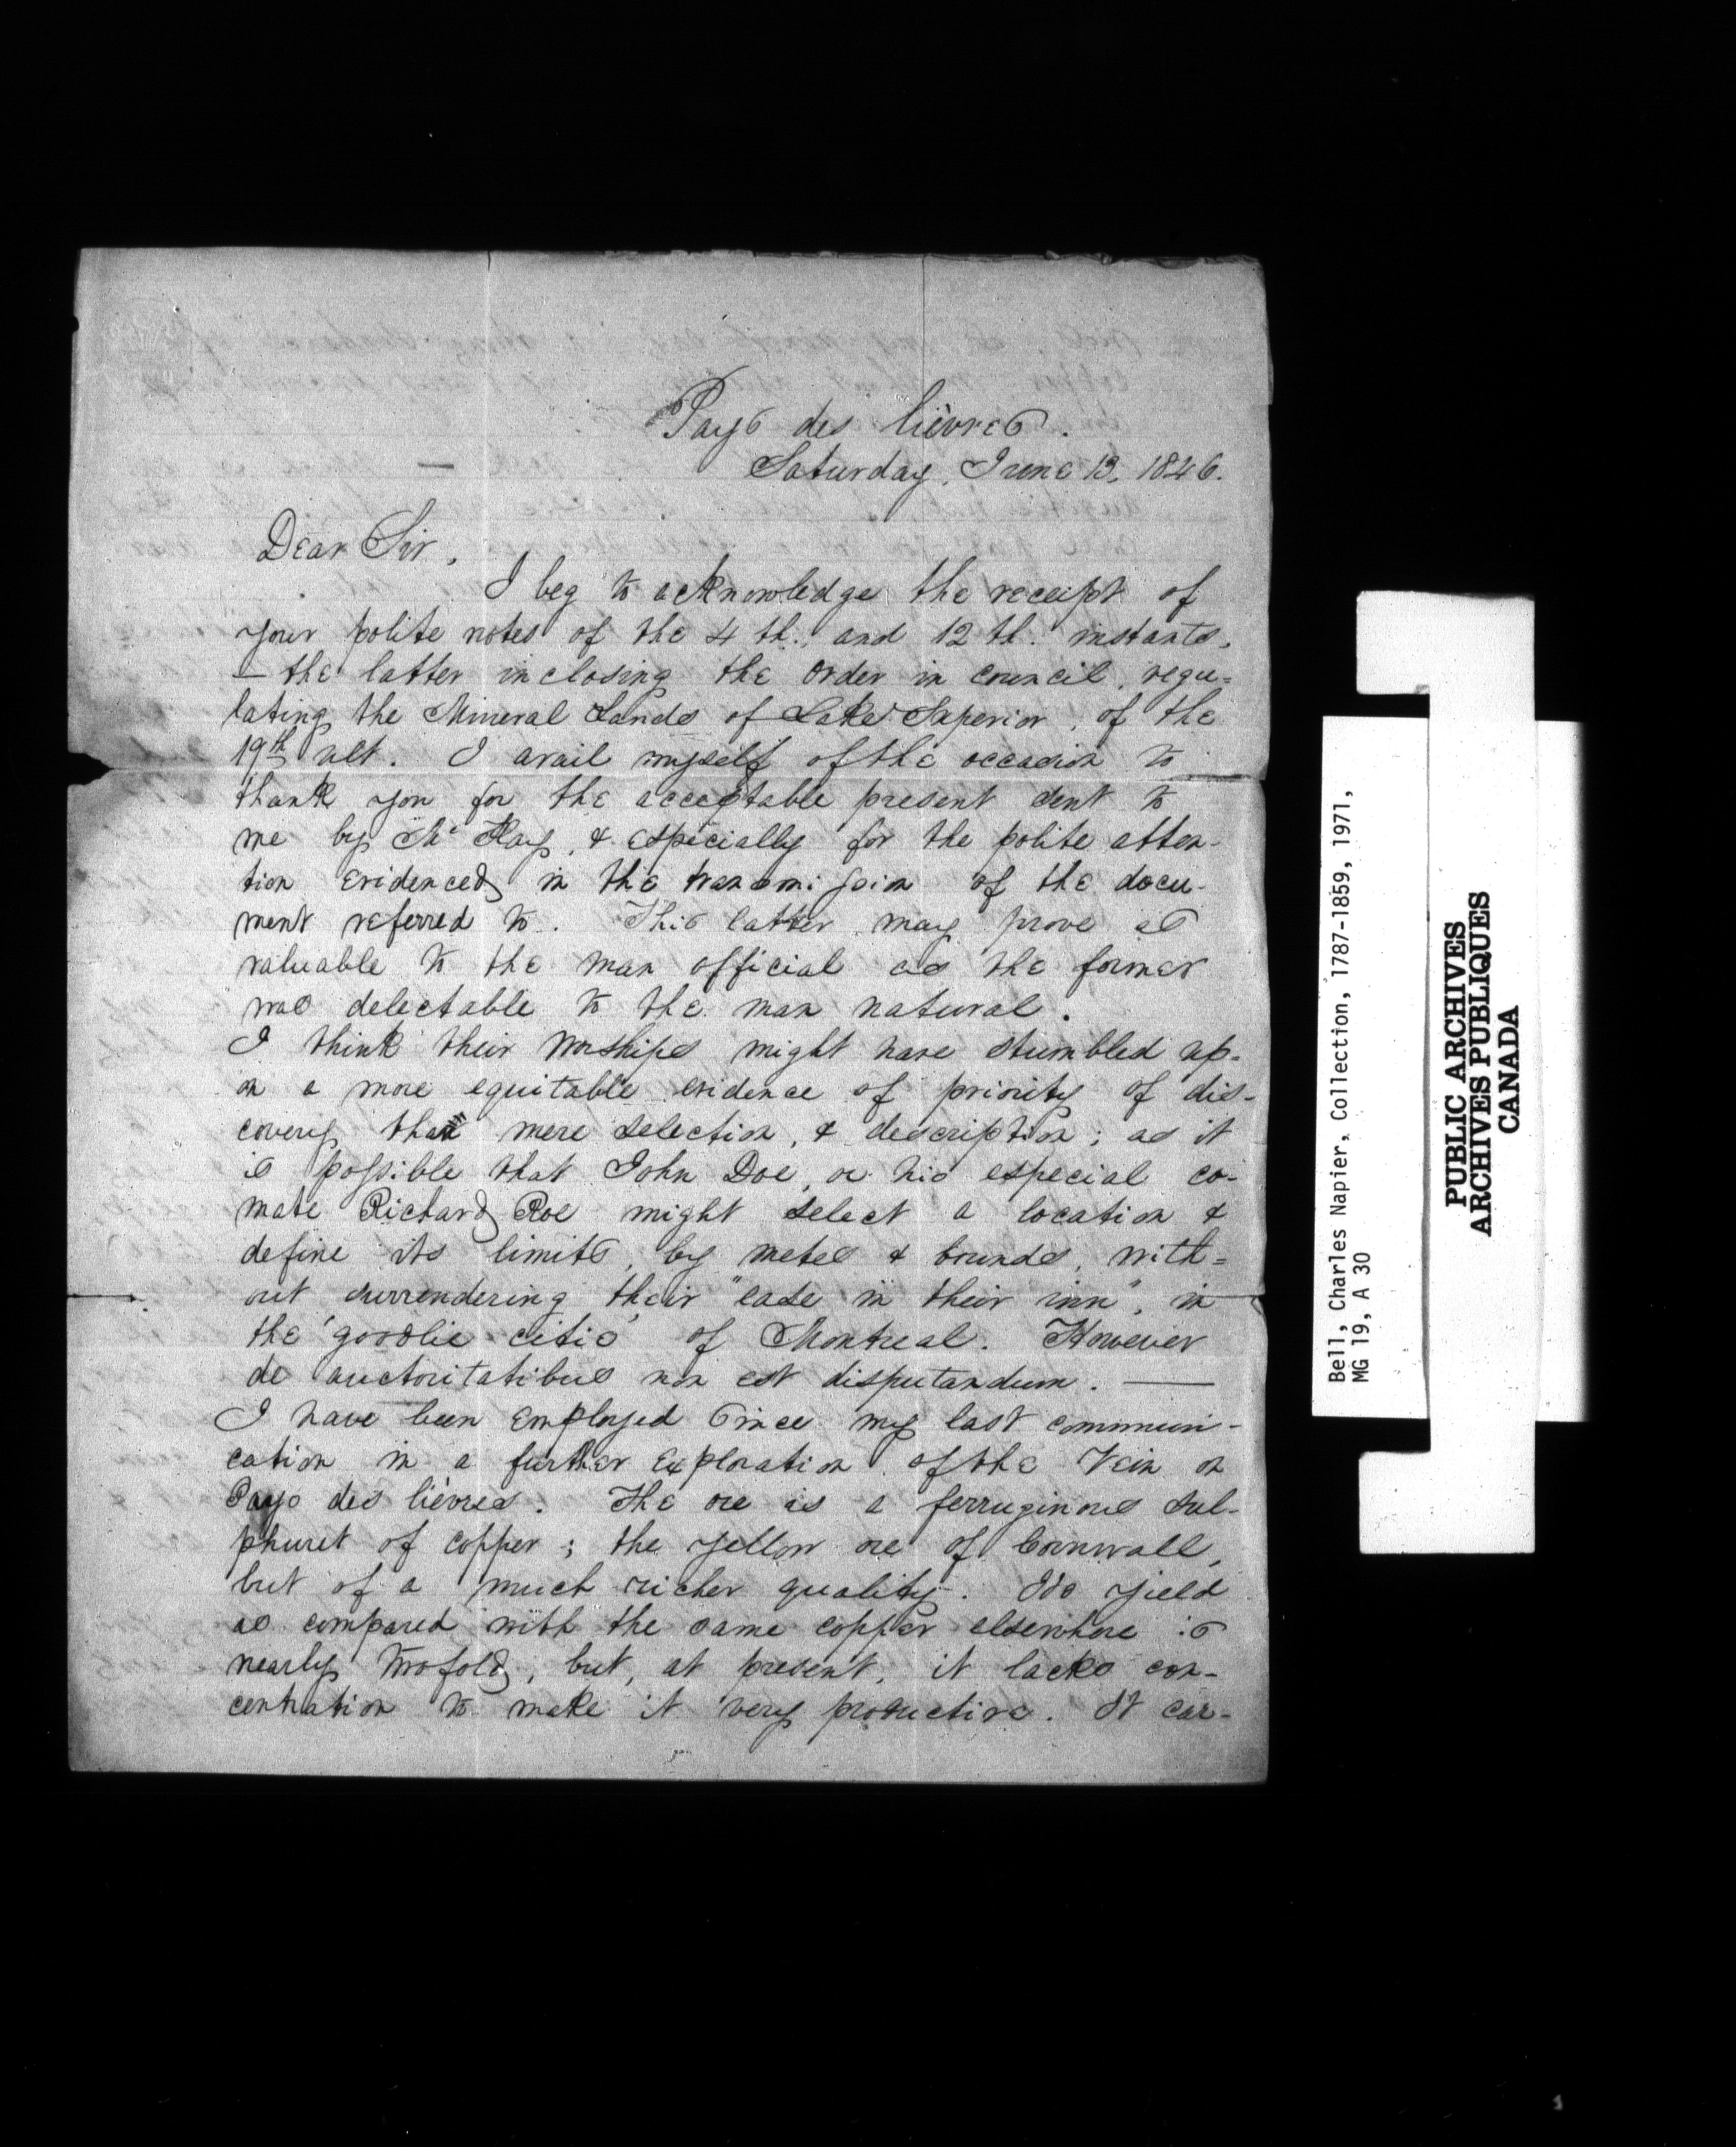 Pays des lièvres.
Saturday, June 13, 1846.
Dear Sir,
I beg to acknowledge the receipt of
your polite notes of the 4 th. and 12 th. instants,
— the latter inclosing the order in council, regu=
lating the Mineral Lands of Lake Superior, of the
19th ult. I avail myself of the occasion to
thank you for the acceptable present sent to
me by Mr Kay, & especially for the polite atten-
tion evidenced in the transmission of the docu-
ment referred to. This latter may prove as
valuable to the man official as the former
was delectable to the man natural.
I think their Worships might have stumbled up-
on a more equitable evidence of priority of dis-
covery than mere selection, & description; as it
is possible that John Doe, or his especial co-
mate Richard Roe might select a location &
define its limits, by metes & bounds, with=
out surrendering their "ease in their inn", in
the 'goodlie citie' of Montreal. However
de auctoritatibus non est disputandum. —
I have been employed since my last communi-
cation in a further exploration of the Vein on
Pays des lièvres. The ore is a ferruginous sul-
phuret of copper; the yellow ore of Cornwall,
but of a much richer quality. Its yield
as compared with the same copper elsewhere is
nearly twofold, but, at present, it lacks con-
centration to make it very productive. It car-
Bell, Charles Napier, Collection, 1787-1859, 1971,
MG 19, A 30
PUBLIC ARCHIVES
ARCHIVES PUBLIQUES
CANADA